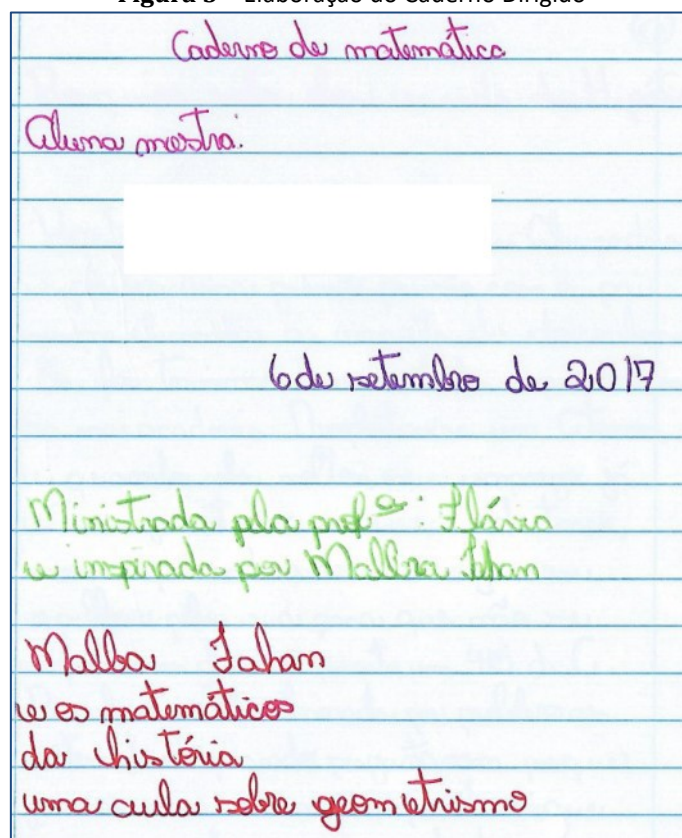 Figura 3 – Elaboração do Caderno Dirigido
Caderno de matemática
Aluna mestra:
6 de setembro de 2017
Ministrada pla profª: Flávia
e inspirada por Malba Tahan
Malba Tahan
e os matemáticos
da história
uma aula sobre geometrismo